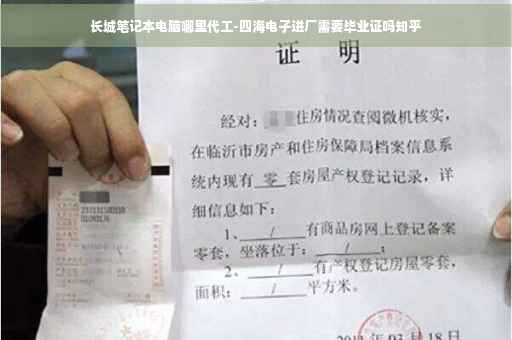 长城笔记本电脑哪里代工-四海电子进厂需要毕业证吗知乎
证 明
经对：住房情况查阅微机核实，
在临沂市房产和住房保障局档案信息系
统内现有 零 套房屋产权登记记录，详
细信息如下：
1、 / 有商品房网上登记备案
零套，坐落位于： / ；
2、 / 有产权登记房屋零套，
面积： / 平方米。
03月18日